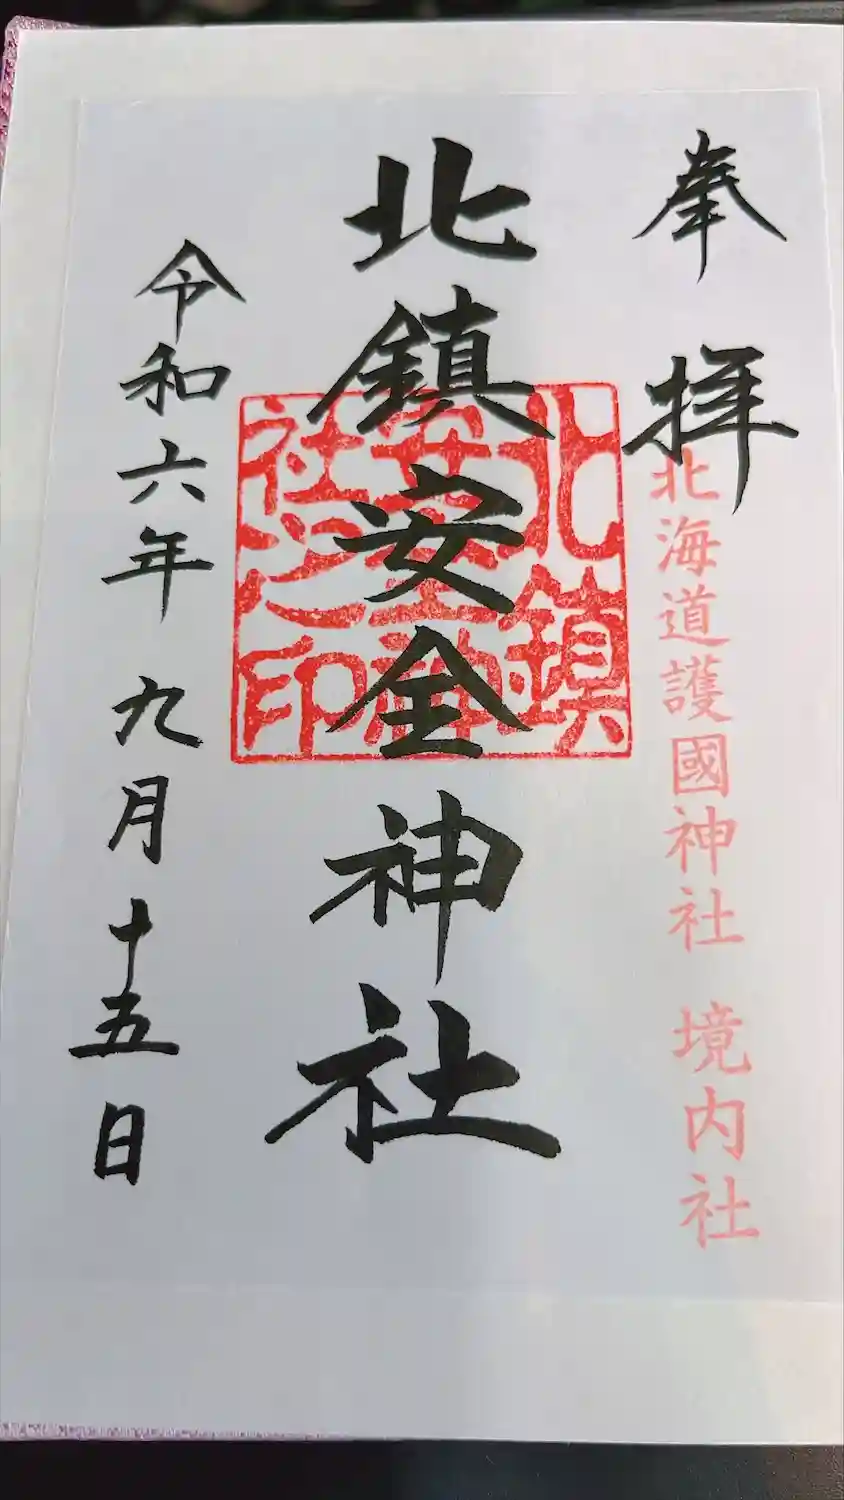 奉拝
北海道護國神社 境内社
北鎮安全神社
北鎮
安全神
社之印
令和六年九月十五日